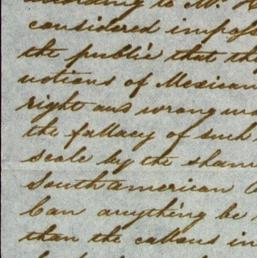 according to Mr. H
considered imposs
the public that the
notions of Mexican
right and wrong wa
the fallacy of such
scale by the sham
South american
Can anything be
than the callous in